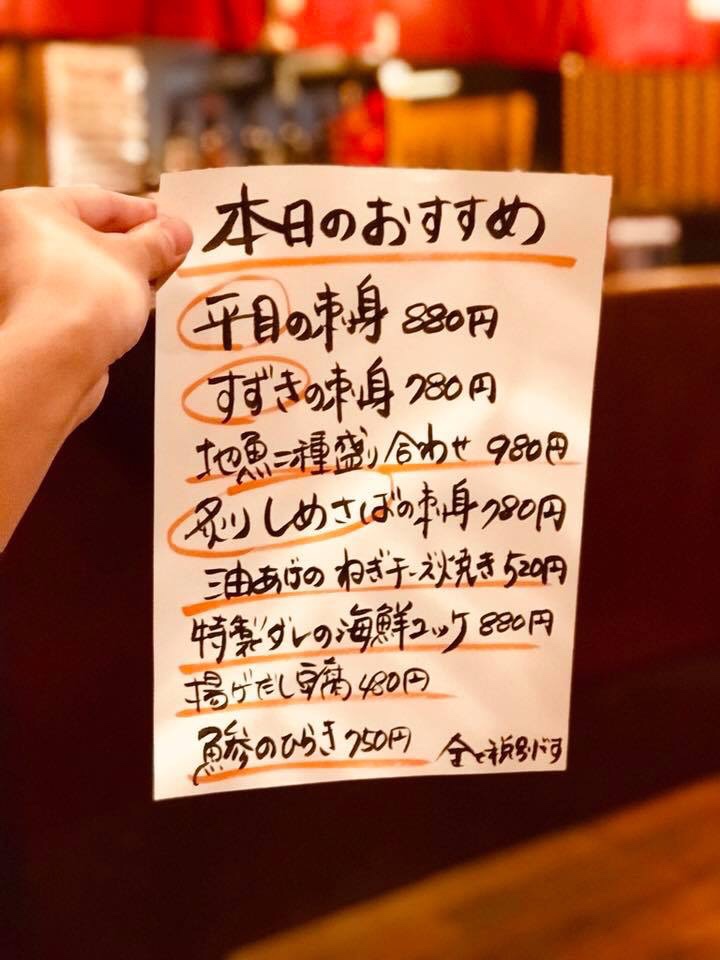 本日のおすすめ
平目の刺身 880円
すずきの刺身 780円
地魚二種盛り合わせ 980円
炙りしめさばの刺身 780円
油あげのねぎチーズ焼き 520円
特製ダレの海鮮ユッケ 880円
揚げだし豆腐 480円
鯵のひらき 750円
全て税別です